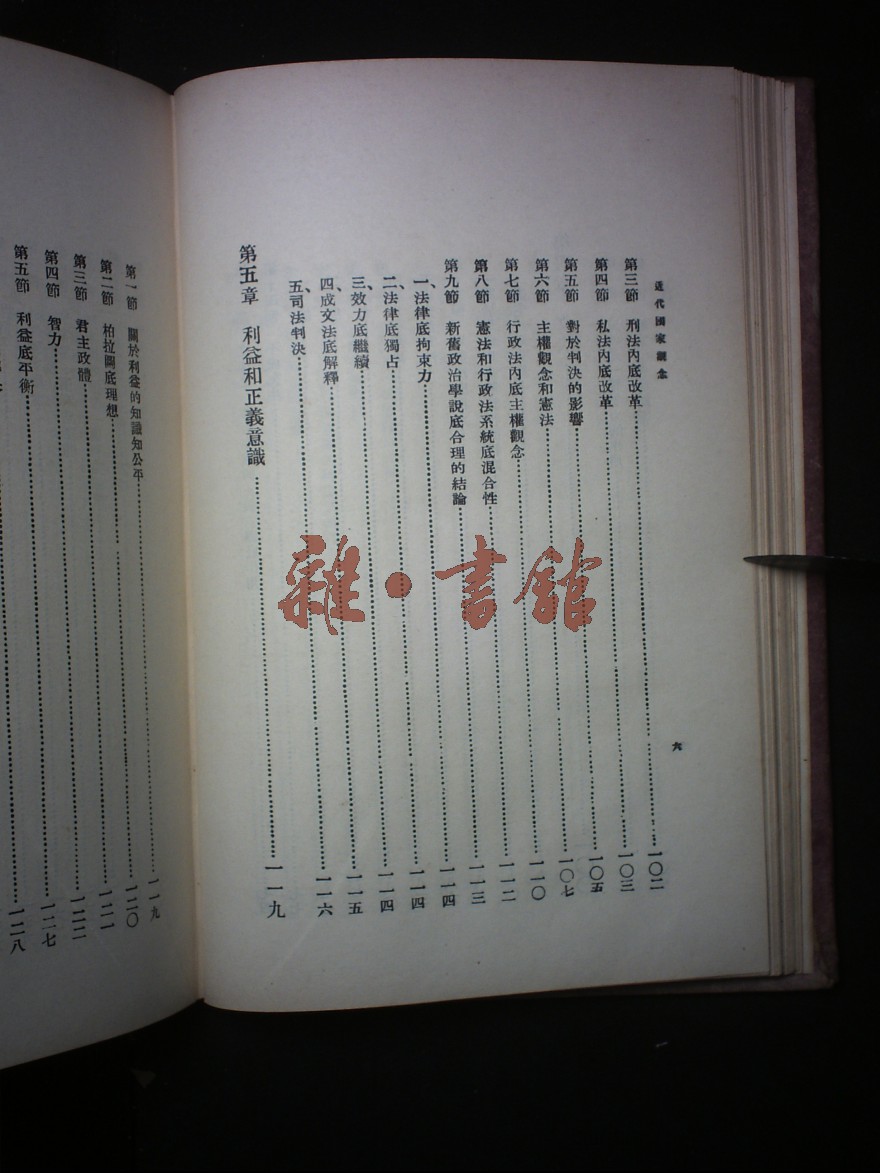 近代國家觀念
第三節 刑法內底改革……一〇二
第四節 私法內底改革……一〇三
第五節 對於判決的影響……一〇五
第六節 主權觀念和憲法……一〇七
第七節 行政法內底主權觀念……一一〇
第八節 憲法和行政法系統底混合性……一一二
第九節 新舊政治學說底合理的結論……一一三
一、法律底拘束力……一一四
二、法律底獨占……一一四
三、效力底繼續……一一四
四、成文法底解釋……一一五
五、司法判決……一一六
第五章 利益和正義意識……一一九
六
第一節 關於利益的知識知公平……一一九
第二節 柏拉圖底理想……一二〇
第三節 君主政體……一二一
第四節 智力……一二二
第五節 利益底平衡……一二七
一二八
雜·書館